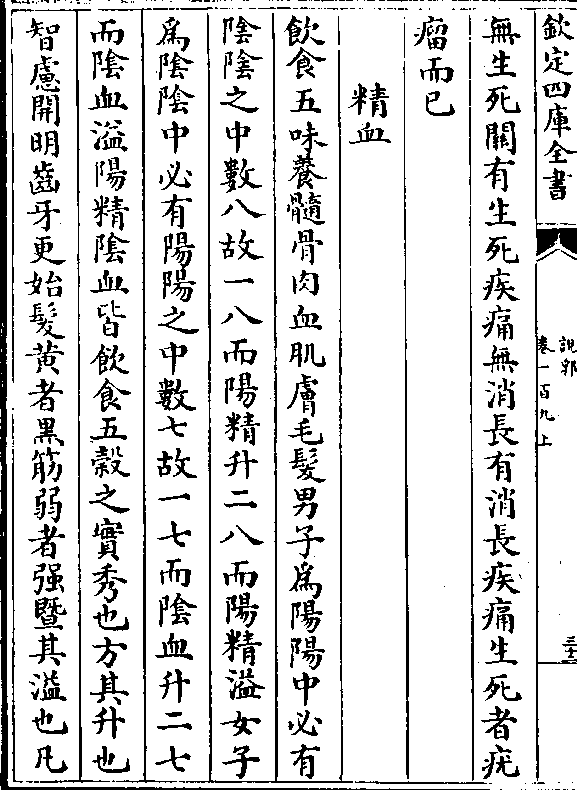 欽定四庫全書
說郛
卷一百九上
三十二
無生死關有生死疾痛無消長有消長疾痛生死者疣
瘤而已
精血
飲食五味養髓骨肉血肌膚毛髮男子為陽陽中必有
陰陰之中數八故一八而陽精升二八而陽精溢女子
為陰陰中必有陽陽之中數七故一七而陰血升二七
而陰血溢陽精陰血皆飲食五榖之實秀也方其升也
智慮開明齒牙更始髮黄者黑筋弱者强暨其溢也凡